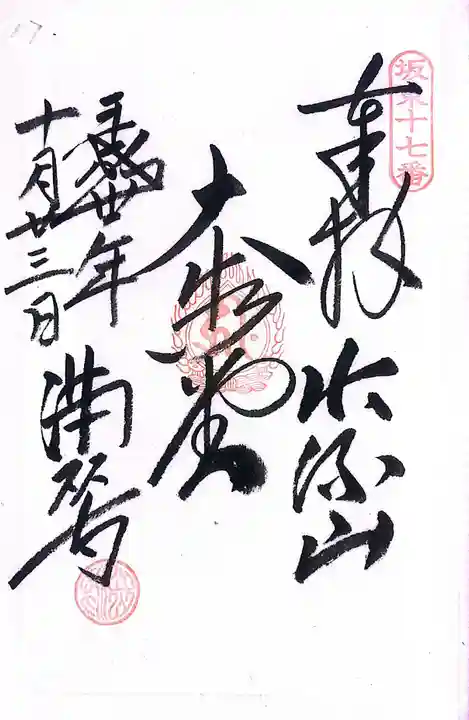 坂東十七番
奉拝 出流山
大御堂
平成廿年
十月廿三日
満願寺
17